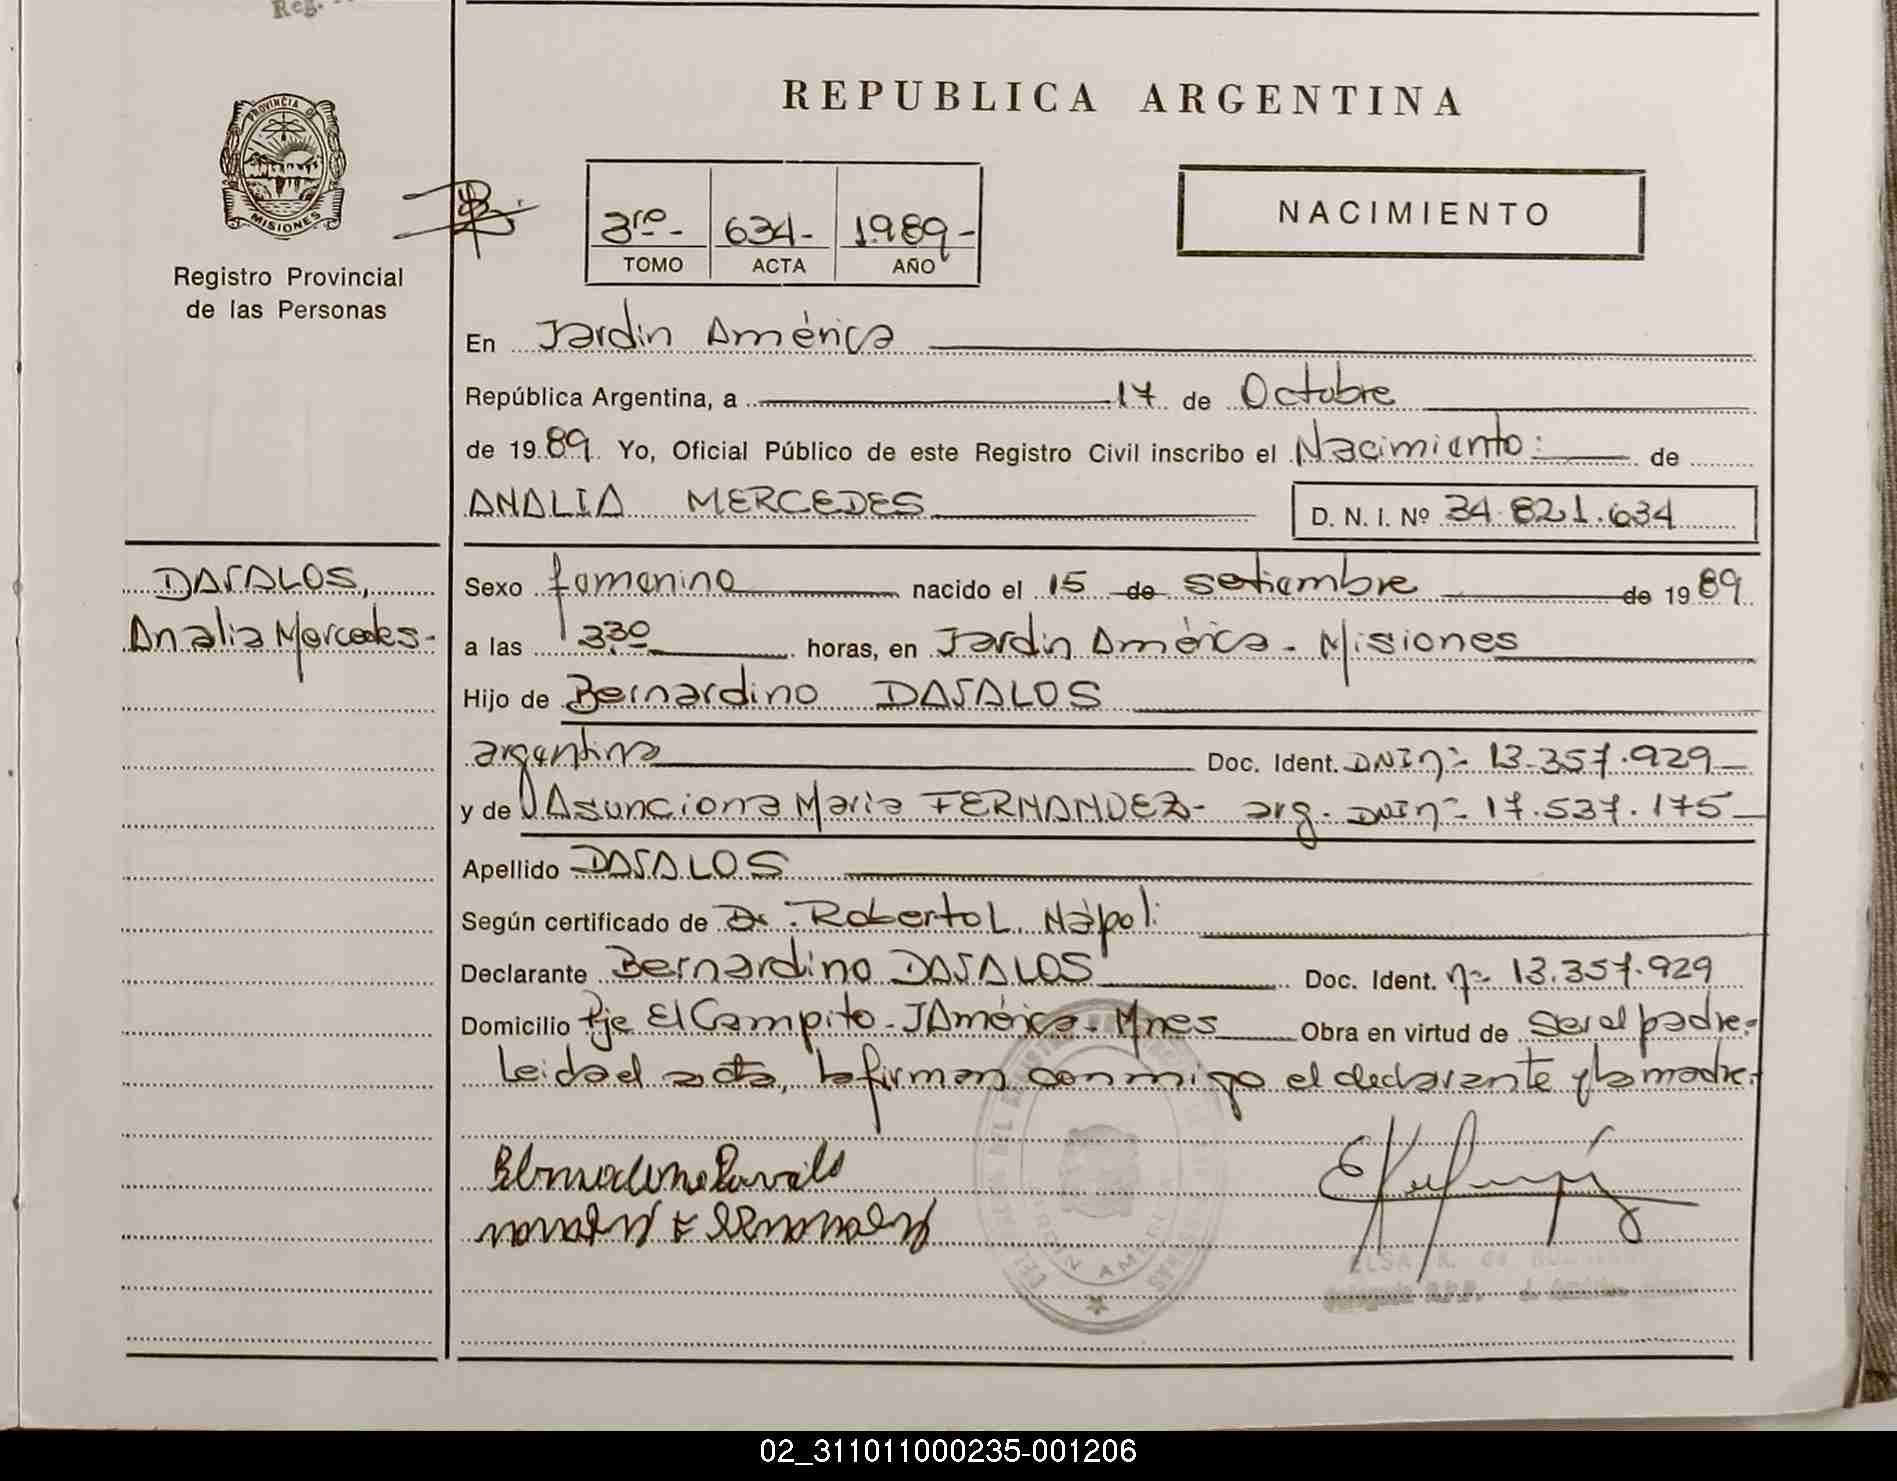 Reg.
REPUBLICA ARGENTINA
PROVINCIA D
MISIONES
Registro Provincial
de las Personas
3ro- 634- 1.989-
TOMO ACTA AÑO
NACIMIENTO
En Jardín América
República Argentina, a 17 de Octubre
de 1989 Yo, Oficial Público de este Registro Civil inscribo el Nacimiento: de
ANALIA MERCEDES D. N. I. Nº 34.821.634
DASALOS,
Analia Mercedes-
Sexo femenino nacido el 15 de setiembre de 1989
a las 3,30 horas, en Jardín América - Misiones
Hijo de Bernardino DASALOS
argentina Doc. Ident. DNI nº 13.357.929
y de Asunciona Maria FERNANDEZ- arg. DNI nº 17.537.175
Apellido DASALOS
Según certificado de Dr: Roberto L. Nápoli
Declarante Bernardino DASALOS Doc. Ident. nº 13.357.929
Domicilio Pje El Campito - J América - Mnes Obra en virtud de ser el padre.-
Leida el acta, la firman conmigo el declarante y la madre.
JARDIN AMERICA
ELSA K. de
02_311011000235-001206